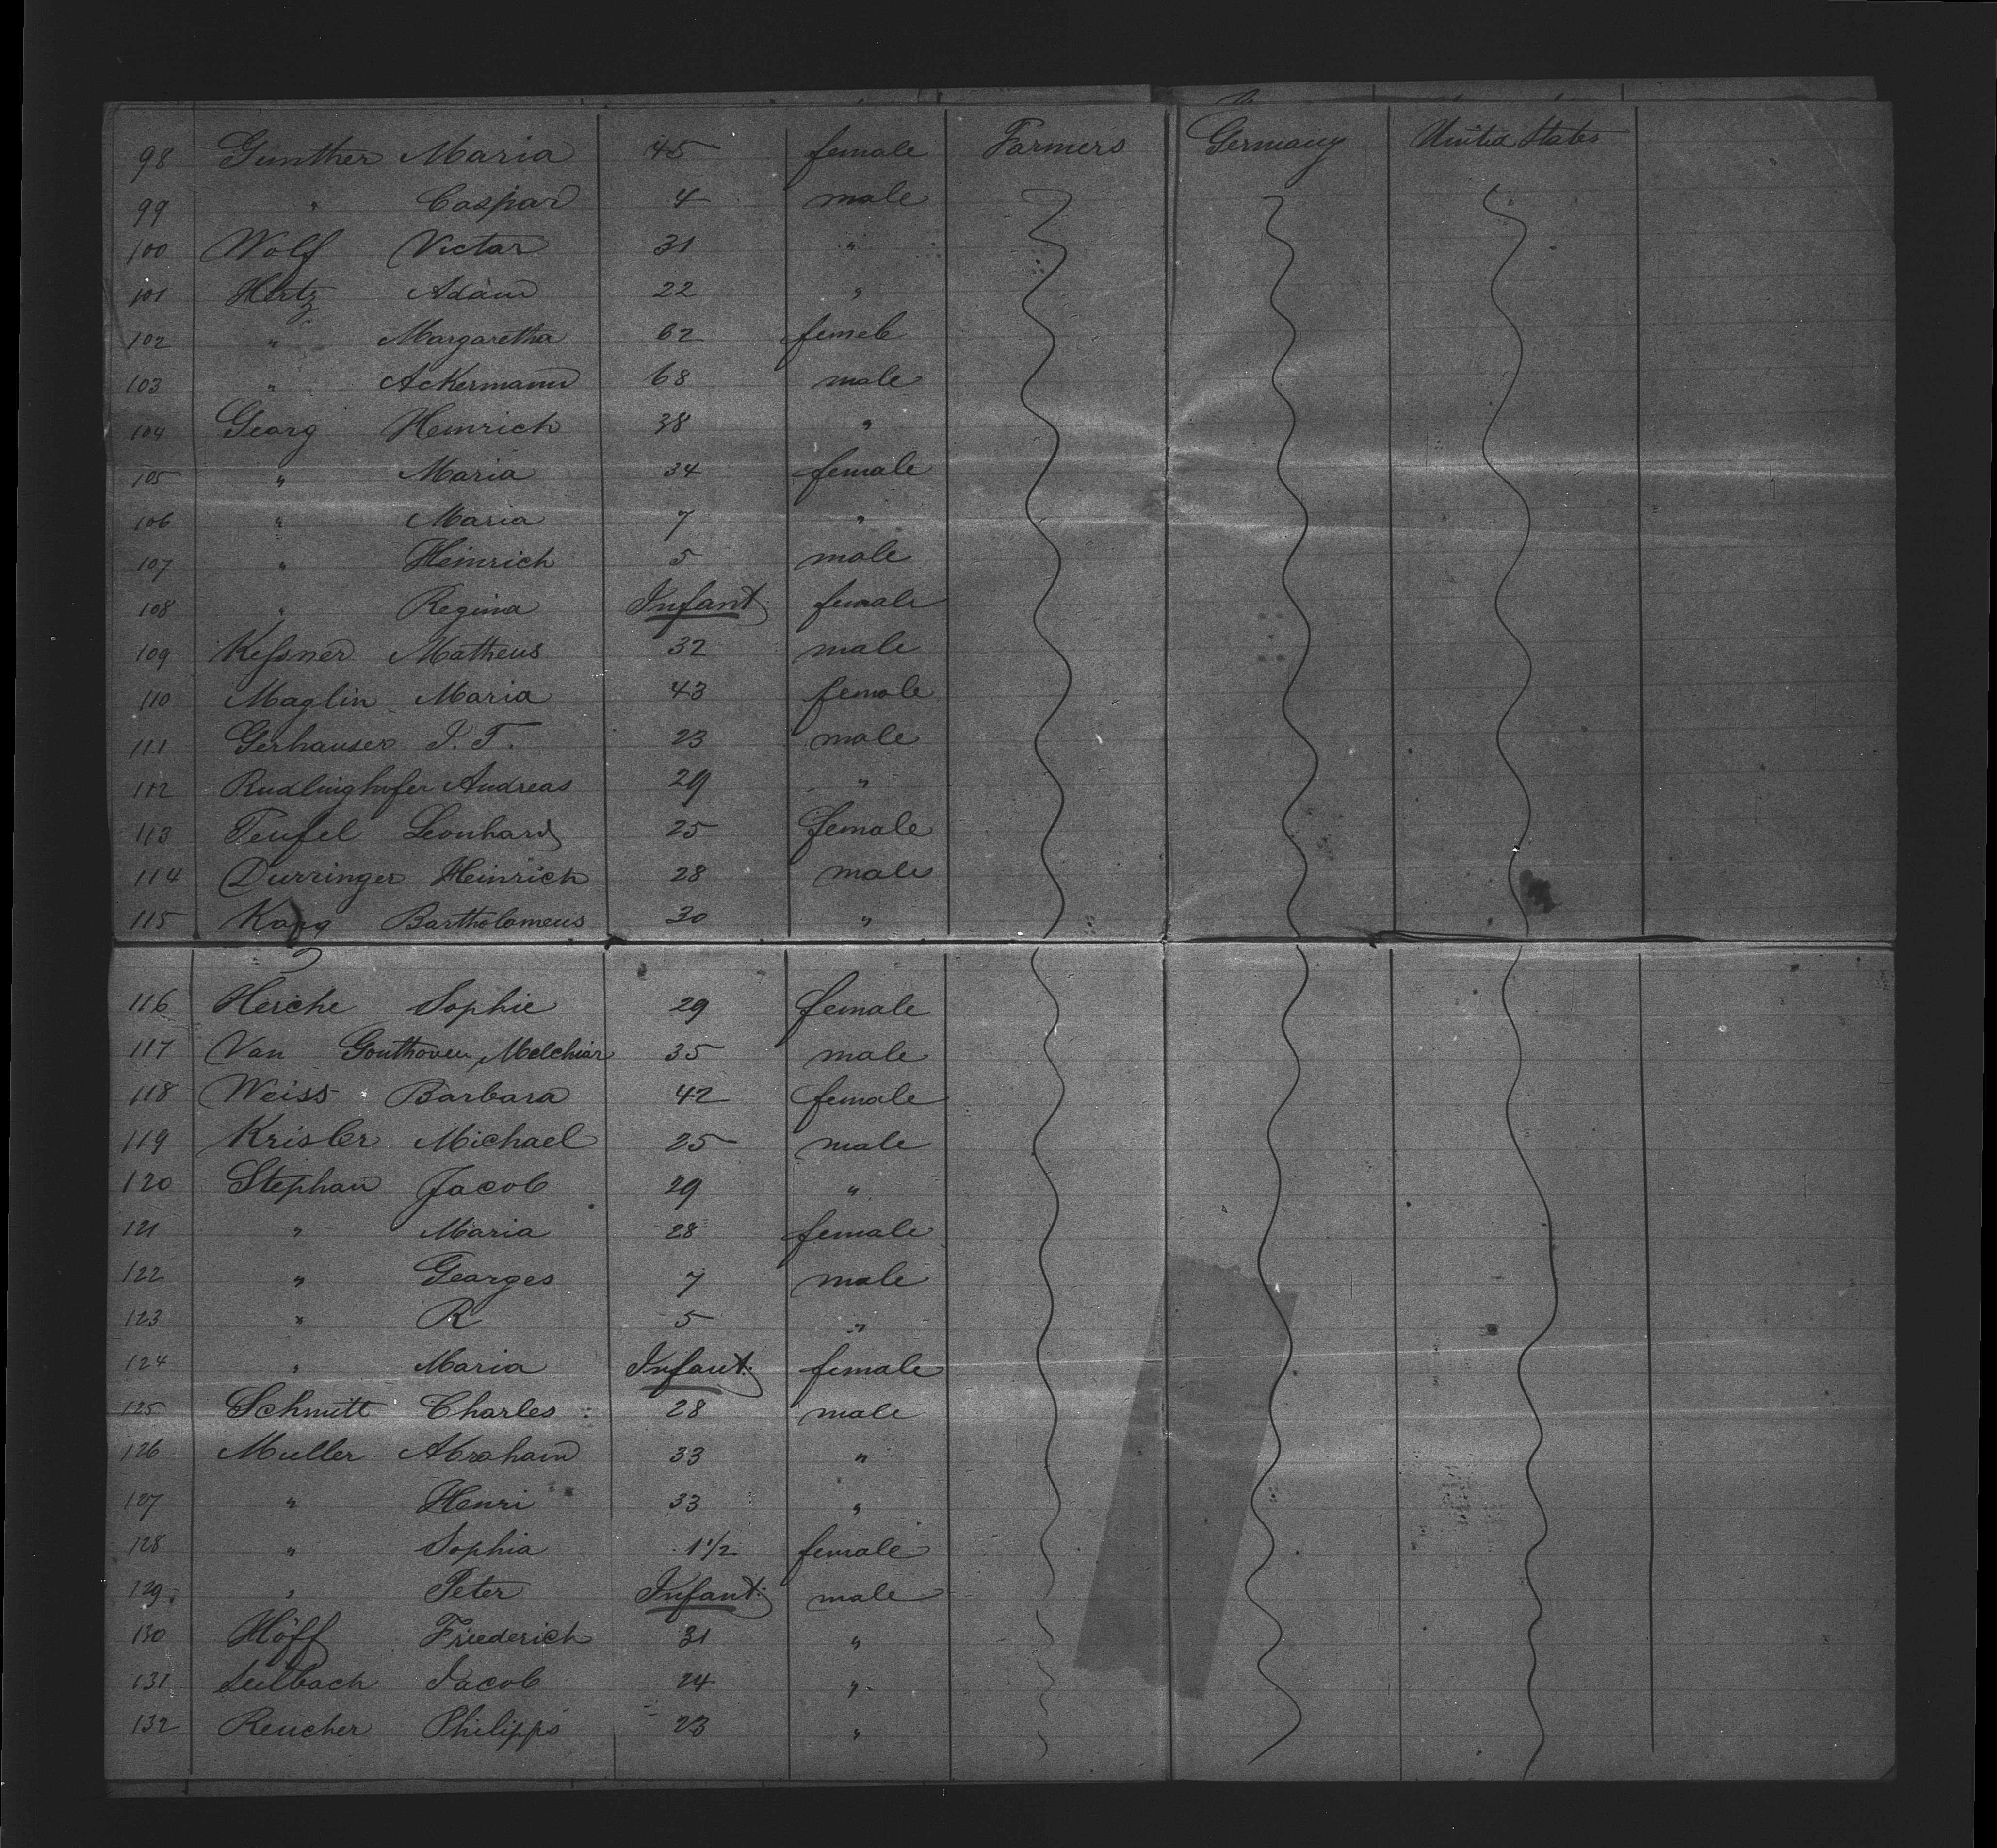 98 Gunther Maria 45 female Farmers Germany United States
99 " Caspar 4 male
100 Wolf Victor 31 "
101 Hertz Adam 22 "
102 " Margaretha 62 female
103 " Ackermann 68 male
104 Georg Heinrich 38 "
105 " Maria 34 female
106 " Maria 7 "
107 " Heinrich 5 male
108 " Regina Infant female
109 Keſsner Matheus 32 male
110 Maglin Maria 43 female
111 Gerhauser J. T. 23 male
112 Rudlinghofer Andreas 29 "
113 Teufel Leonhard 25 female
114 Durringer Heinrich 28 male
115 Karg Bartholomeus 30 "
116 Herche Sophie 29 female
117 Van Gouthoven, Melchior 35 male
118 Weiss Barbara 42 female
119 Krisler Michael 25 male
120 Stephan Jacob 29 "
121 " Maria 28 female
122 " Georges 7 male
123 " R 5 "
124 " Maria Infant. female
125 Schmitt Charles 28 male
126 Muller Abraham 33 "
127 " Henri 33 "
128 " Sophia 1 1/2 female
129 " Peter Infant. male
130 Höff Friederich 31 "
131 Jacob 24 "
132 Reucher Philipps 23 "